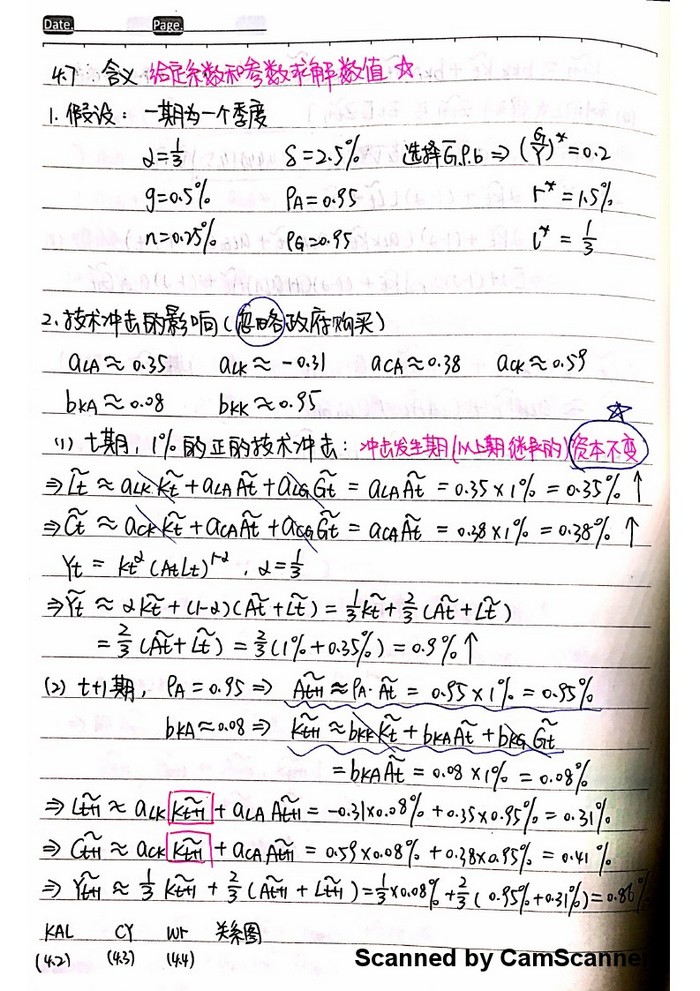 Date. Page.
4.7 含义 给定系数和参数求解数值 ☆
1. 假设: 一期为一个季度
α=1/3 δ=2.5% 选择Ḡ.P.b ⇒ (G/Y)* = 0.2
g=0.5% ρA=0.95 r* = 1.5%
n=0.25% ρG=0.95 l* = 1/3
2. 技术冲击的影响 (忽略政府购买)
aLA ≈ 0.35 aLK ≈ -0.31 aCA ≈ 0.38 aCK ≈ 0.59
bKA ≈ 0.08 bKK ≈ 0.95
(1) t期, 1% 的正的技术冲击: 冲击发生期(从上期继承的) 资本不变 ☆
⇒ L̃t ≈ aLK K̃t + aLA Ãt + aLG G̃t = aLA Ãt = 0.35 × 1% = 0.35% ↑
⇒ C̃t ≈ aCK K̃t + aCA Ãt + aCG G̃t = aCA Ãt = 0.38 × 1% = 0.38% ↑
Yt = Kt^α (AtLt)^1-α , α = 1/3
⇒ Ỹt ≈ αK̃t + (1-α)(Ãt + L̃t) = 1/3 K̃t + 2/3 (Ãt + L̃t)
= 2/3 (Ãt + L̃t) = 2/3 (1% + 0.35%) = 0.9% ↑
(2) t+1期, ρA = 0.95 ⇒ Ãt+1 ≈ ρA · Ãt = 0.95 × 1% = 0.95%
bKA ≈ 0.08 ⇒ K̃t+1 ≈ bKK K̃t + bKA Ãt + bKG G̃t
= bKA Ãt = 0.08 × 1% = 0.08%
⇒ L̃t+1 ≈ aLK K̃t+1 + aLA Ãt+1 = -0.31×0.08% + 0.35×0.95% = 0.31%
⇒ C̃t+1 ≈ aCK K̃t+1 + aCA Ãt+1 = 0.59×0.08% + 0.38×0.95% = 0.41%
⇒ Ỹt+1 ≈ 1/3 K̃t+1 + 2/3 (Ãt+1 + L̃t+1) = 1/3×0.08% + 2/3 (0.95% + 0.31%) = 0.86%
KAL CY wr 关系图
(4.2) (4.3) (4.4)
Scanned by CamScanner